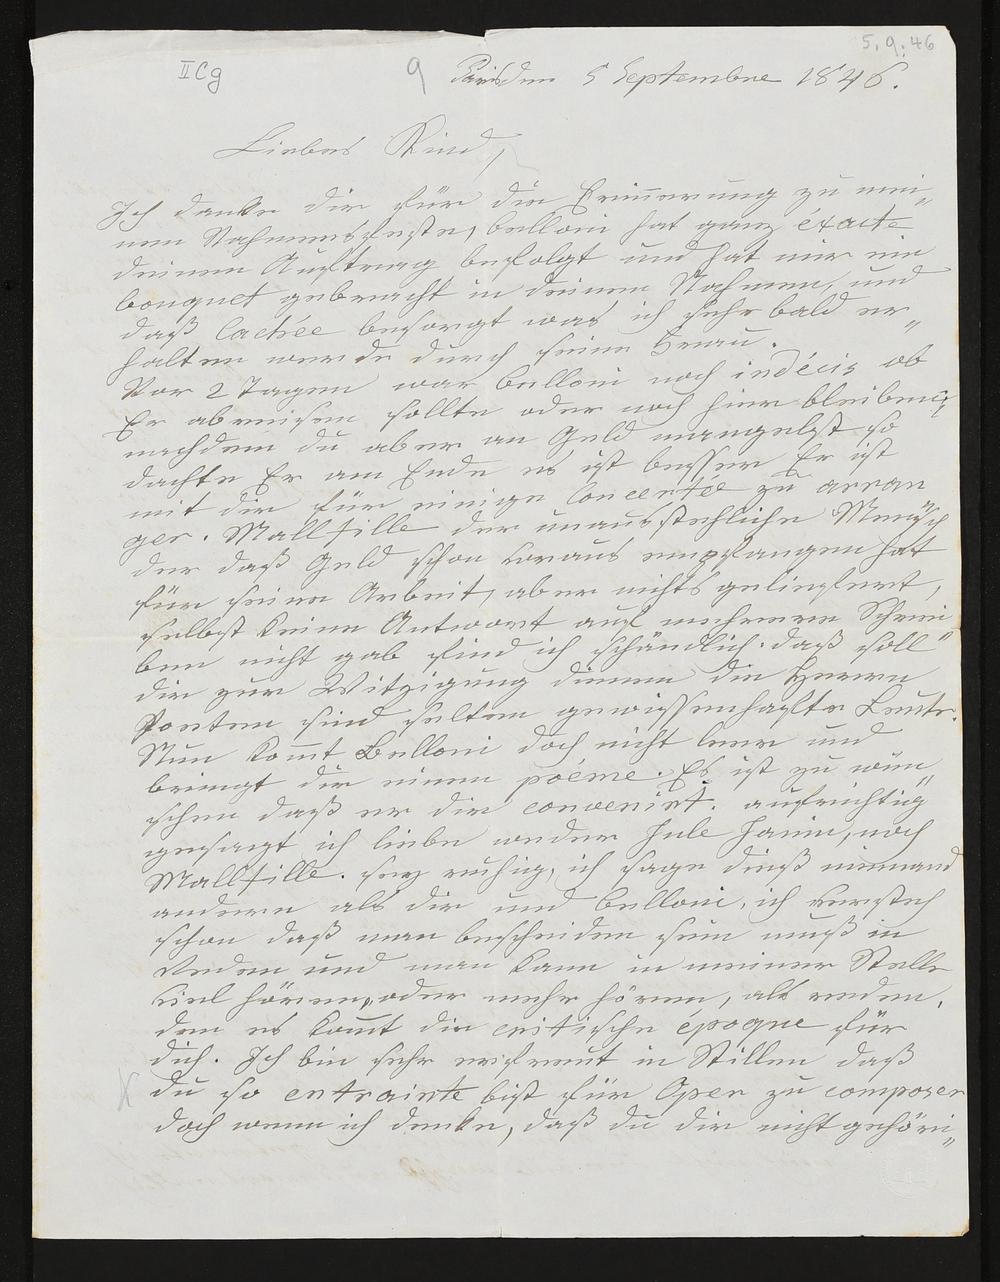 5. 9. 46
II Cg
9
Paris den 5 Septembre 1846.
Liebes Kind,
Ich danke dir für die Erinnerung zu mei„
nem Nahmensfeste, Belloni hat ganz éxacte
deinen Auftrag befolgt und hat mir ein
bouquet gebracht in deinen Nahmen, und
daß Cachée besorgt was ich sehr bald er„
halten werde durch seine Frau.
Vor 2 Tagen war Belloni noch indécis ob
Er abreisen sollte oder noch hier bleiben,
nachdem du aber an Geld mangelst so
dachte Er am Ende es ist besser Er ist
mit dir für einige Concerte zu arran
ger. Mallfille der unausstehliche Mensch
der daß Geld schon voraus empfangen hat
für seine Arbeit, aber nichts geliefert,
selbst keine Antwort auf mehrere Schrei
ben nicht gab find ich schändlich. daß soll
dir zur Witzigung dienen die Herren
Poeten sind selten gewissenhafte Leute.
Nun komt Belloni doch nicht leer und
bringt dir einen poéme. Es ist zu wün„
schen daß er dir convenirt. aufrichtig
gesagt ich liebe weder Jule Janin, noch
Mallfille. sey ruhig, ich sage dieß niemand
andern als dir und Belloni, ich versteh
schon daß man bescheiden sein muß in
Reden und man kann in meiner Stelle
viel hören, oder mehr hören, als reden.
den es komt die critische époque für
dich. Ich bin sehr erfreut in Stillen daß
du so entrainte bist für Oper zu composer
doch wenn ich denke, daß du dir nicht gehöri„